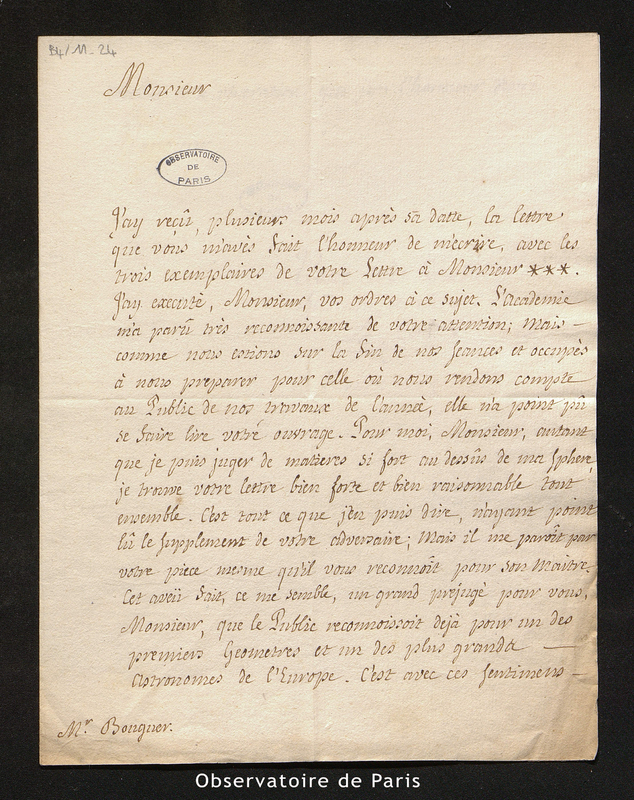 B4/11-24
Monsieur
OBSERVATOIRE
DE
PARIS
J'ay reçû, plusieurs mois après sa datte, la lettre
que vous m'avès fait l'honneur de m'écrire, avec les
trois exemplaires de votre Lettre à Monsieur ***.
J'ay executé, Monsieur, vos ordres à ce sujet. L'académie
m'a parû très reconnoissante de votre attention; mais –
comme nous etions sur la fin de nos seances et occupès
à nous preparer pour celle où nous rendons compte
au Public de nos travaux de l'année, elle n'a point pû
se faire lire votre ouvrage. Pour moi, Monsieur, autant
que je puis juger de matieres si fort au dessûs de ma sphere,
je trouve votre lettre bien forte et bien raisonnable tout
ensemble. C'est tout ce que j'en puis dire, n'ayant point
lû le supplement de votre adversaire; mais il me paroît par
votre piece mesme qu'il vous reconnoît pour son Maitre.
Cet aveü fait, ce me semble, un grand préjugè pour vous,
Monsieur, que le Public reconnoissoit dejà pour un des
premiers Geometres et un des plus grands —
Astronomes de l'Europe. C'est avec ces sentimens –
Mr. Bouguer.
Observatoire de Paris